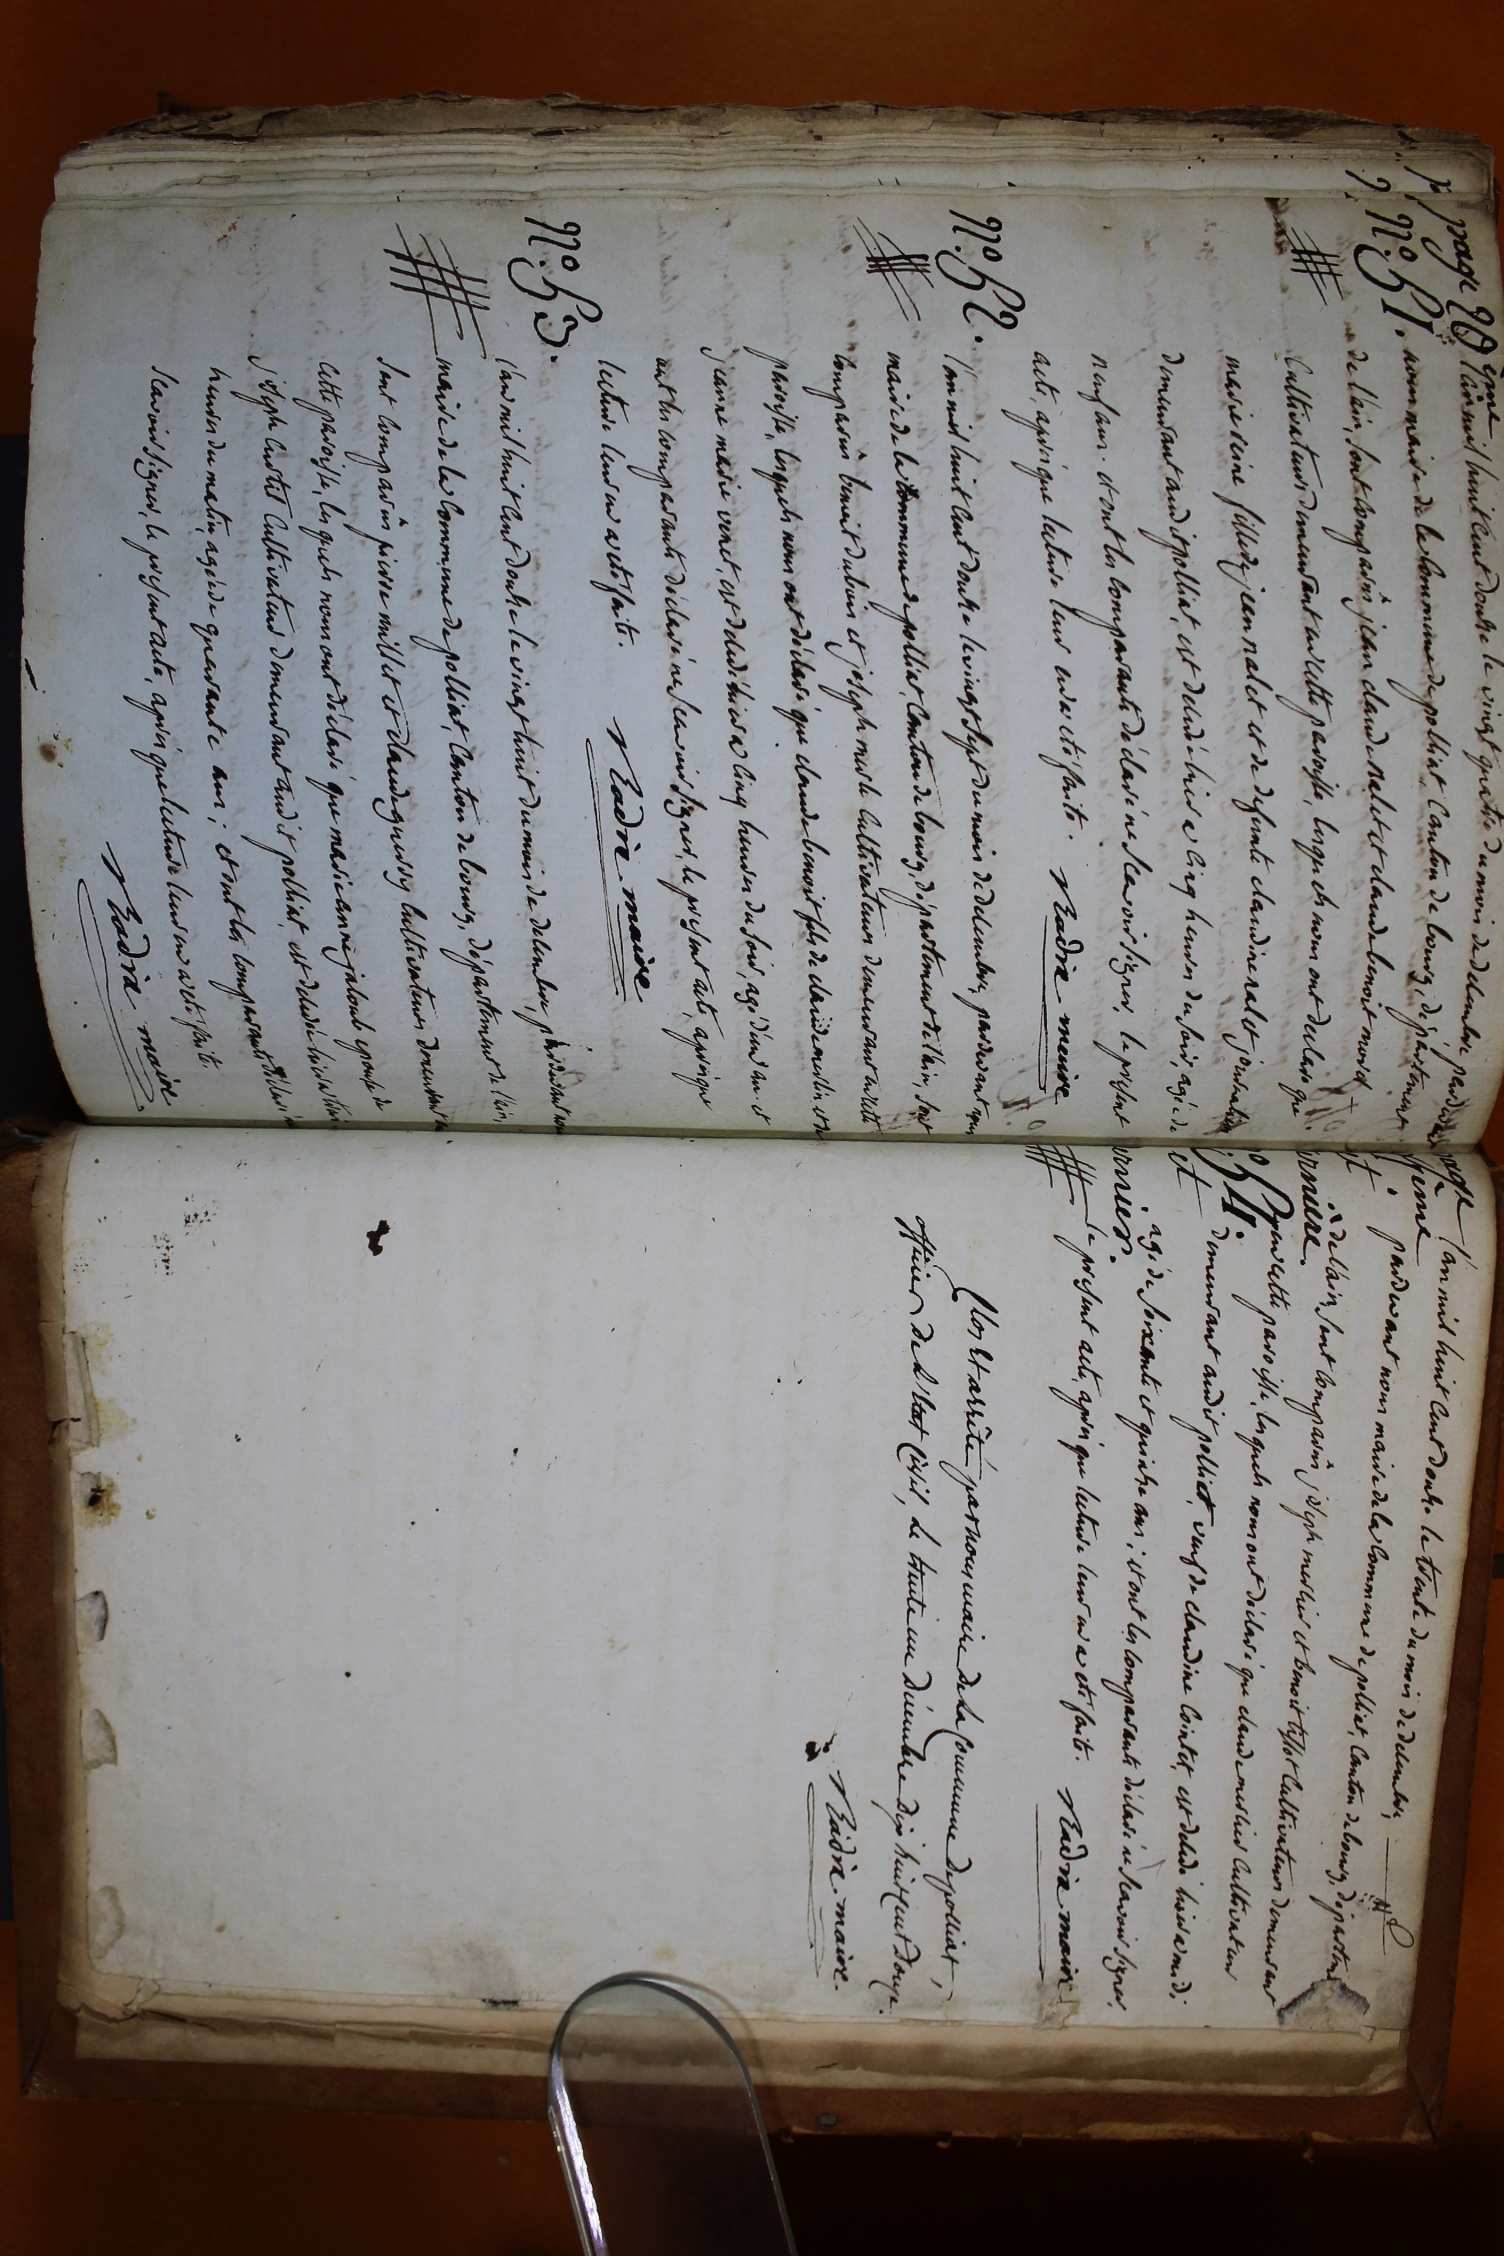 page 26ème
N.º 51. l'an mil huit cent douze le vingt quatre du mois de decembre, pardevant
nous maire de la commune de polliat, canton de bourg, département
de l'ain, sont comparûs jean claude nalet et claude benoit morel
cultivateurs demeurant en cette paroisse, lesquels nous ont déclaré que
marie reine fille de jean nalet et de defunte claudine nalet journalière
demeurant audit polliat, est décédé hier a cinq heures du soir, agé de
neuf ans. et ont les comparants déclaré ne scavoir signer, le présent
acte, après que lecture leur en a eté faite.
Nadra maire
N.º 52. l'an mil huit cent douze le vingt sept du mois de decembre, pardevant nous
maire de la commune de polliat, canton de bourg, département de l'ain, sont
comparûs benoit dubois et joseph musle cultivateurs demeurant en cette
paroisse, lesquels nous ont déclaré que claude benoit fils de claude merlin et de
jeanne marie venet, est décédé hier a cinq heures du soir, agé d'un an. et
ont les comparants déclaré ne scavoir signer, le présent acte, après que
lecture leur en a eté faite.
Nadra maire
N.º 53. l'an mil huit cent douze le vingt huit du mois de decembre, pardevant nous
maire de la commune de polliat, canton de bourg, département de l'ain,
sont comparûs pierre millet et claude guerry cultivateurs demeurant en
cette paroisse, lesquels nous ont déclaré que marie anne jaloub epouse de
joseph curtet cultivateur demeurant audit polliat, est décédé hier à huit
heures du matin, agée de quarante ans; et ont les comparants déclaré ne
scavoir signer, le présent acte, après que lecture leur en a eté faite.
Nadra maire
page
27ème
et
dernière.
N.º 54.
et
dernier.
l'an mil huit cent douze le trente du mois de decembre,
pardevant nous maire de la commune de polliat, canton de bourg, département
de l'ain, sont comparûs joseph merlin et benoit tissot cultivateurs demeurant
en cette paroisse, lesquels nous ont déclaré que claude merlin cultivateur
demeurant audit polliat, veuf de claudine cointet, est décédé hier a midi
agé de soixante et quinze ans; et ont les comparants déclaré ne scavoir signer,
le présent acte, après que lecture leur en a eté faite. Nadra maire
Clos et arrêté par nous maire de la commune de polliat,
officier de l'etat civil, le trente un décembre dix huit cent douze.
Nadra maire.